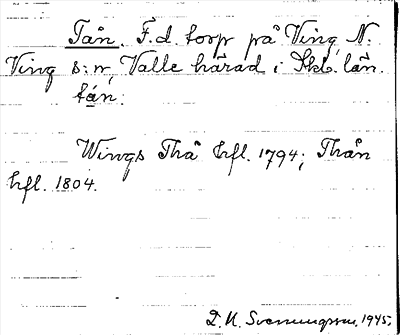 Tån. F.d. torp på Ving, N.
Ving s:n, Valle härad i Skb. län.
tán.
Wings Thå hfl. 1794; Thån
hfl. 1804.
D. U. Svenungsson. 1945.